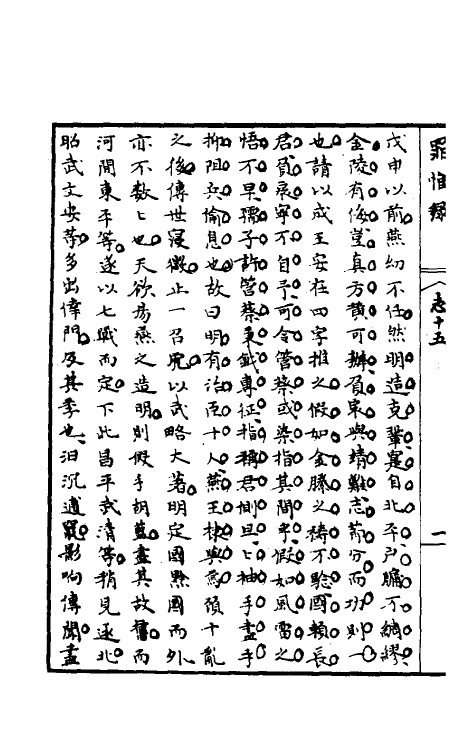 罪惟錄
志十五
一
戊申以前燕幼不任然明造克鞏寔自北平戶牖不綢繆
金陵有倖豈真方黃可辦負扆與靖難志節分而功則一
也請以成王安在四字推之假如金縢之禱不驗國賴長
君負扆寧不自予可令管蔡或染指其間乎假如風雷之
悟不早孺子許管蔡秉鉞專征指稱君側旦亡袖手盡手
抑阻兵愉息也故曰明有治臣十人燕王棣與焉殞十亂
之後傳世寢微止一召虎以武略大著明定國黔國而外
亦不數數也天欲昜燕之造明則假手胡藍盡其故舊而
河間東平等遂以七戰而定下此昌平武清等稍見逐北
昭武文安等多出倖門及其季也汩沉邅影响傳聞盡